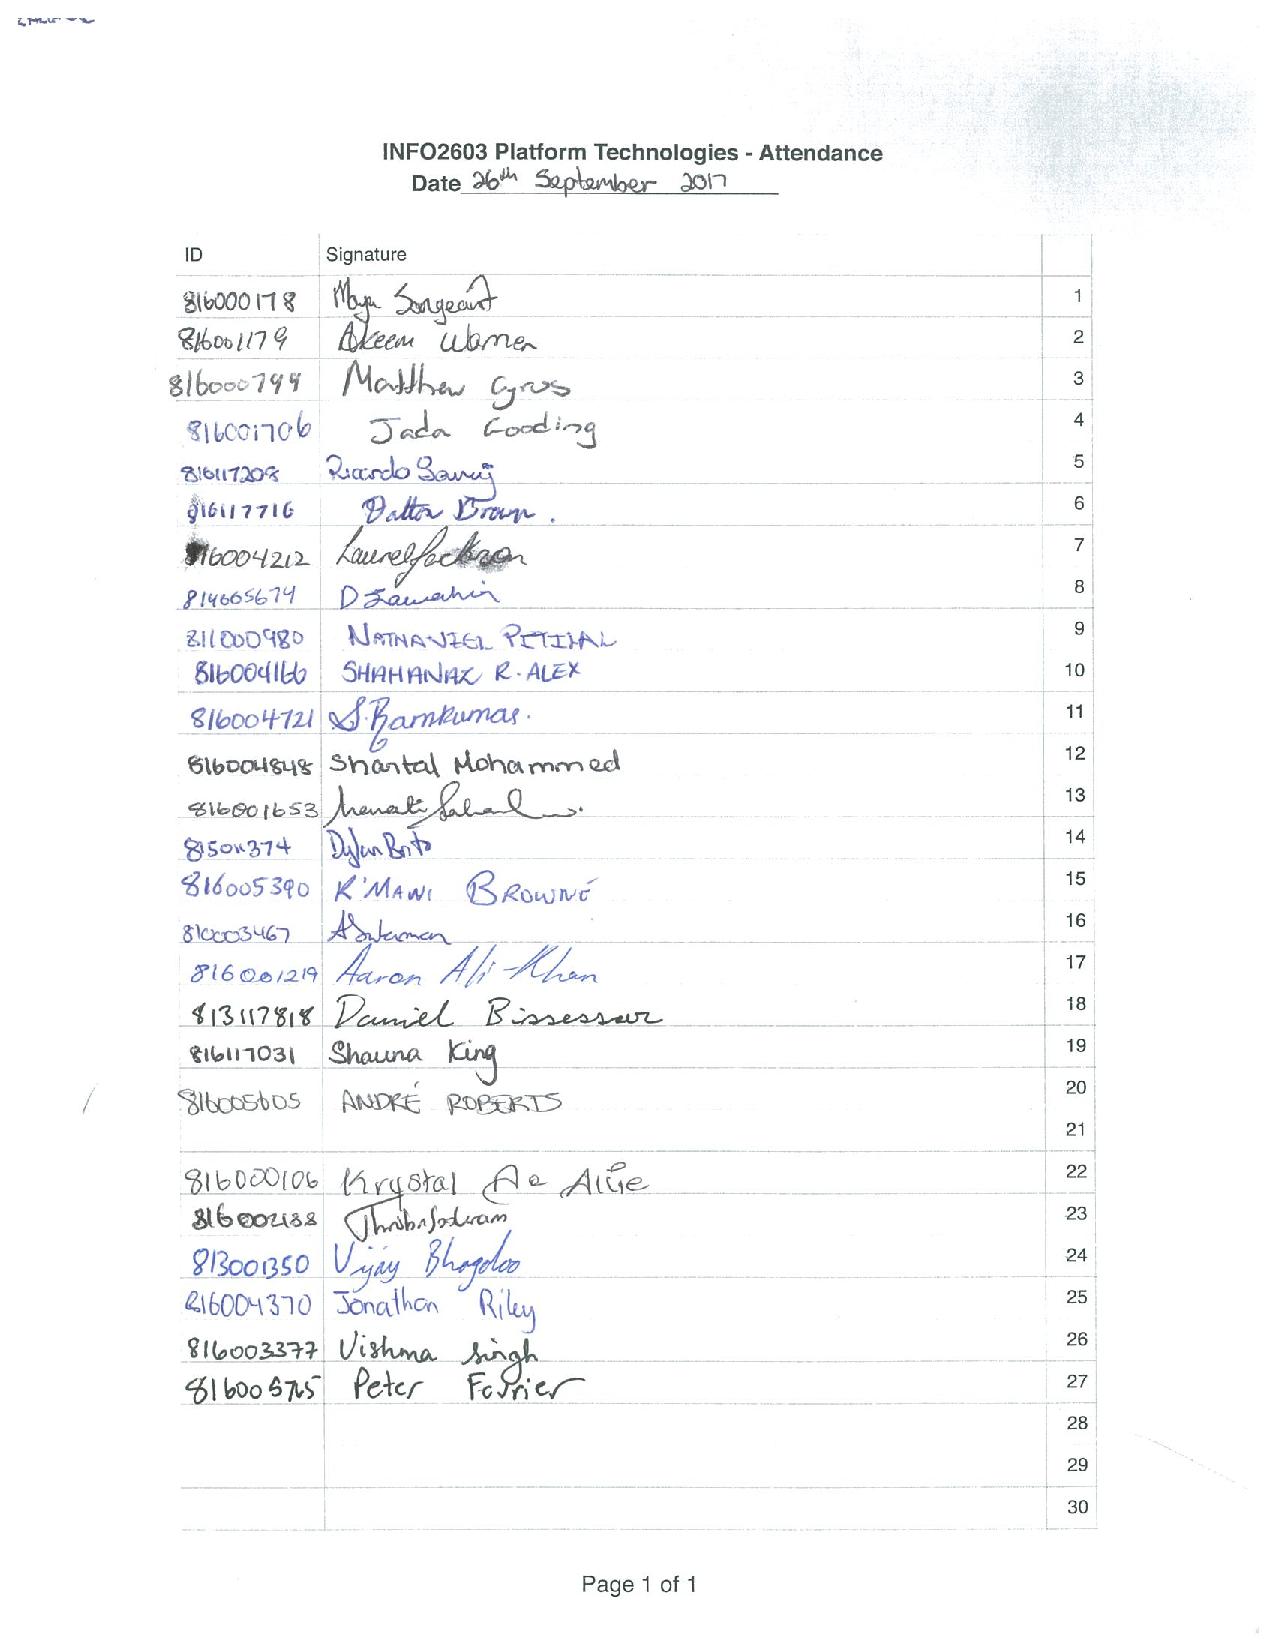 INFO2603 Platform Technologies - Attendance
Date 26th September 2017
ID Signature
816000178 Maya Sargeant 1
816001179 Akeem Warner 2
816000799 Matthew Cyrus 3
816001706 Jada Gooding 4
816117208 Ricardo 5
816117716 Dalton Brown. 6
816004212 Laurel Jackson 7
814005674 D 8
811000980 NATHANIEL 9
816004166 SHAHANAZ R. ALEX 10
816004721 S. Ramkumar. 11
816004848 Shantal Mohammed 12
816001653 13
Dylan Brito 14
816005390 K'MANI BROWNE 15
810003467 16
816001219 Aaron Ali-Khan 17
813117818 Daniel Bissessar 18
816117031 Shauna King 19
816005605 ANDRÉ ROBERTS 20
21
816000106 Krystal 22
23
813001350 Vijay Bhagoloo 24
816004370 Jonathan Riley 25
816003377 Vishma Singh 26
816005765 Peter Forrier 27
28
29
30
Page 1 of 1